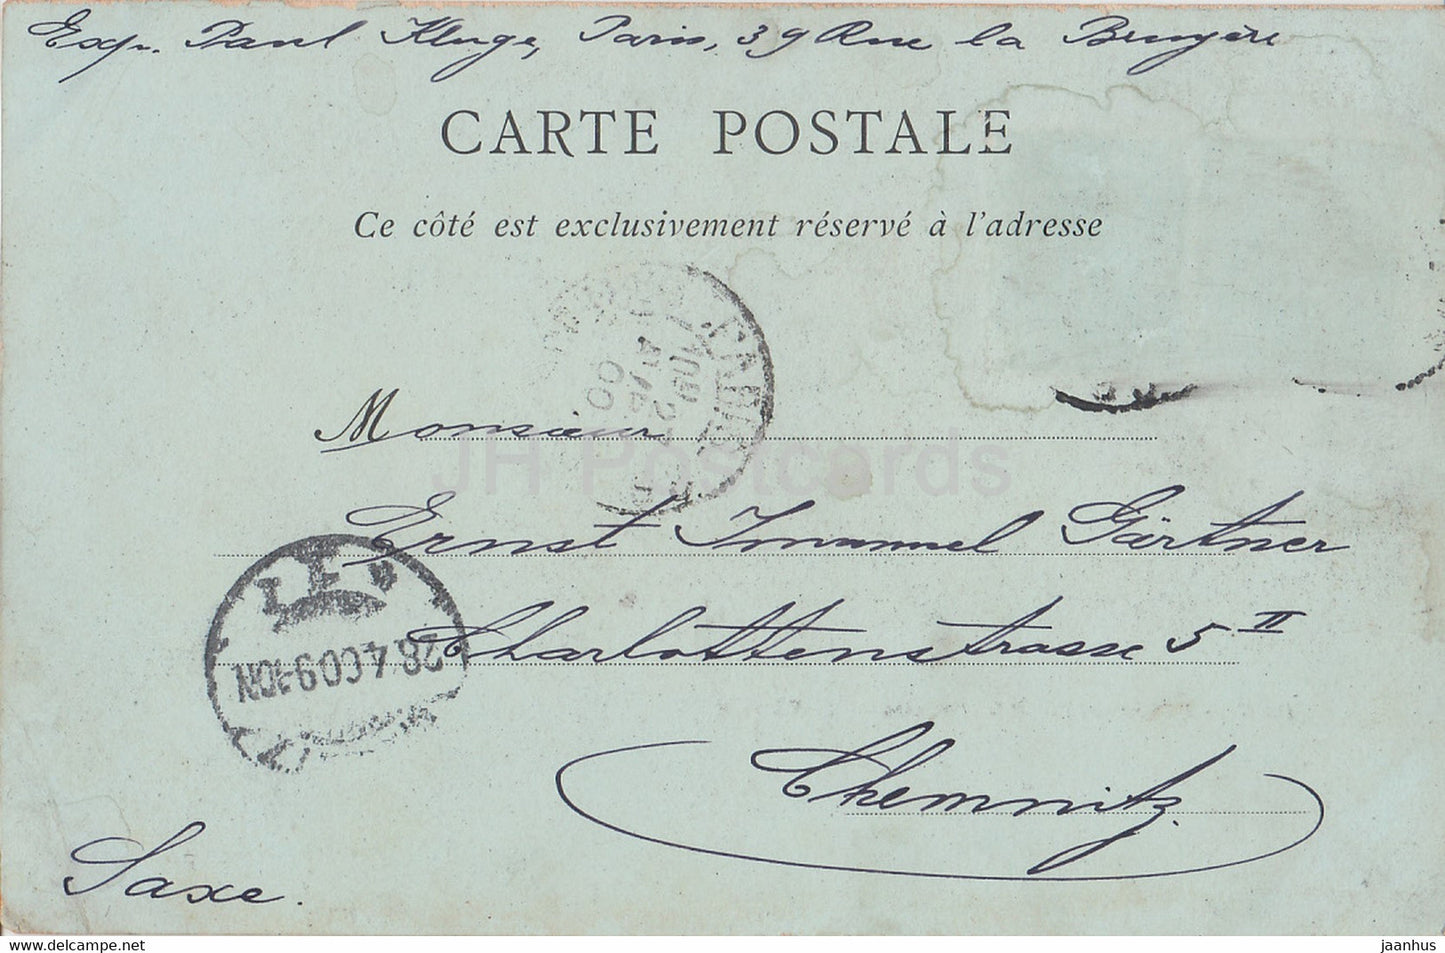 Exp. Paul Kluge, Paris, 39 Rue la Bruyère
CARTE POSTALE
Ce côté est exclusivement réservé à l'adresse
PARIS
AVR
00
Monsieur
JH Postcards
Ernst Immanuel Gärtner
28.4.00 9-10N
Charlottenstrasse 5 II
Chemnitz.
Saxe.
jaanhus